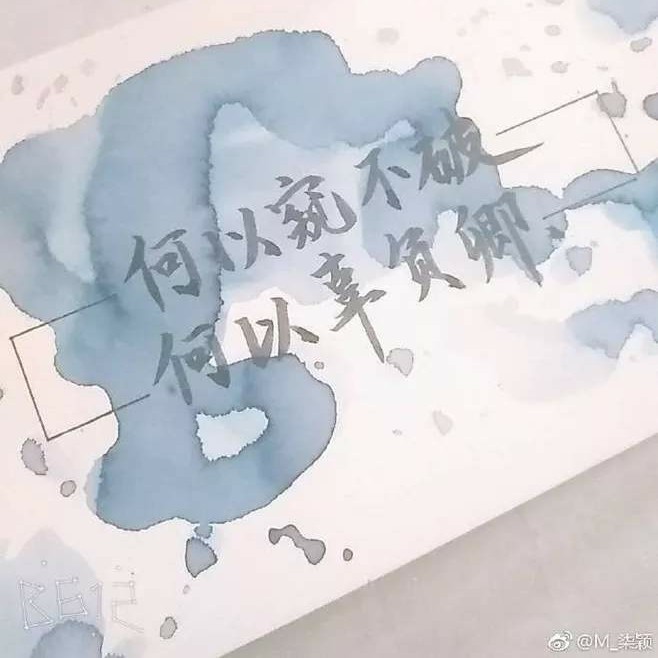 何以窥不破
何以辜负卿
B612
@M_柒颖